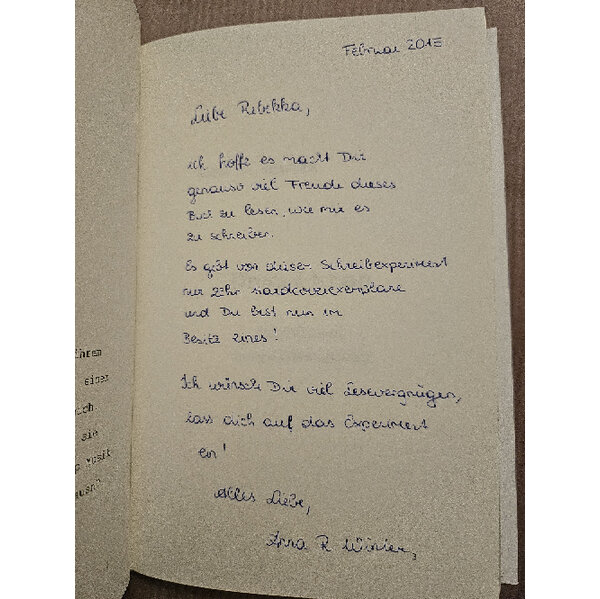 Februar 2015
Liebe Rebekka,
ich hoffe es macht Dir
genauso viel Freude dieses
Buch zu lesen, wie mir es
zu schreiben.
Es gibt von dieser Schreibexperiment
nur zehn Hardcoverexemplare
und Du bist nun im
Besitz eines!
Ich wünsche Dir viel Lesevergnügen,
lass dich auf das Experiment
ein!
Alles Liebe,
Anna R.
ihrem
einer
ich.
sie